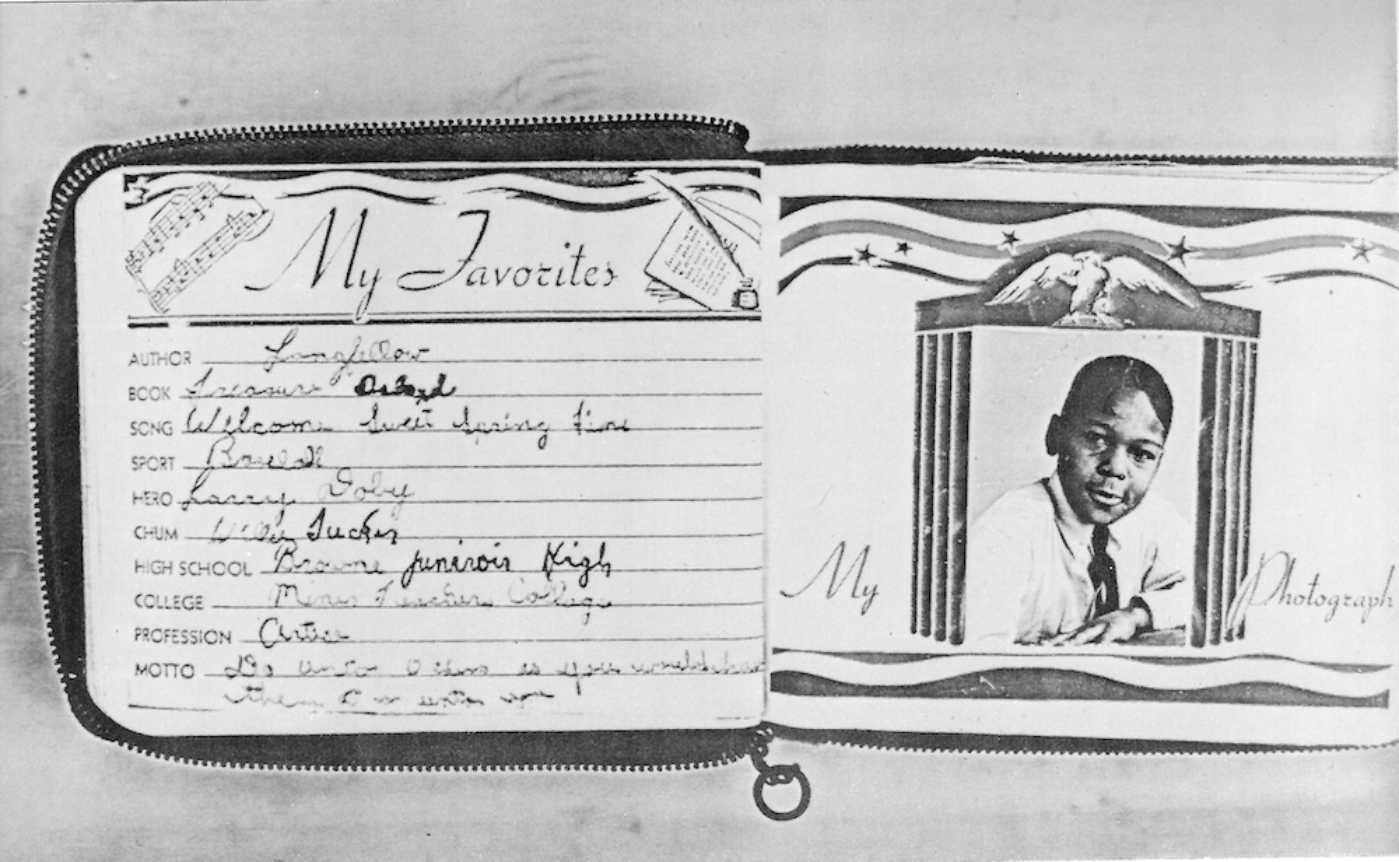 My Favorites
AUTHOR Longfellow
BOOK Treasure Island
SONG Welcome Sweet Spring time
SPORT Baseball
HERO Larry Doby
CHUM Tucker
HIGH SCHOOL Browne juniroir High
COLLEGE Miner Teachers College
PROFESSION
MOTTO Do unto others as you would have
them do unto you
My Photograph